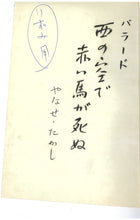 バラード
西の空で
赤い馬が死ぬ
やなせ・たかし